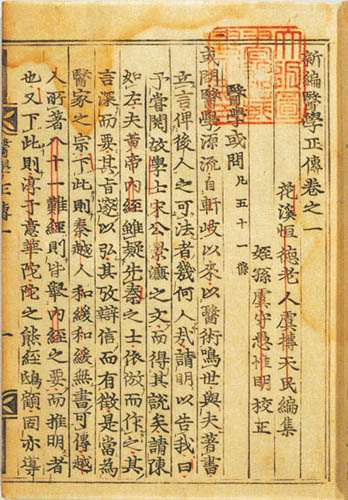 新編醫學正傳卷之一
花溪恒德老人虞摶天民編集
姪孫虞守愚惟明校正
醫學或問 凡五十一條
或問醫學源流自軒岐以來以醫術鳴世與夫著書
立言俾後人之可法者幾何人哉請明以告我曰
予嘗閱故學士宋公景濂之文而得其說矣請陳
如左夫黃帝內經雖疑先秦之士依倣而作之其
言深而要其旨邃以弘其攷辯信而有徵是當為
醫家之宗下此則秦越人和緩和緩無書可傳越
人所著八十一難經則皆舉內經之要而推明者
也又下此則淳于意華陀陀之熊經鴟顧固亦導